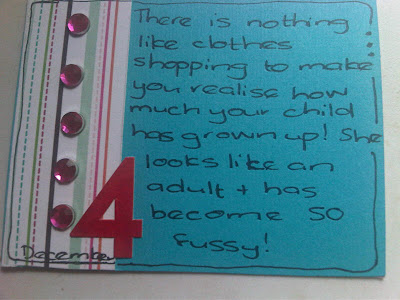 There is nothing
like clothes
shopping to make
you realise how
much your child
has grown up! She
looks like an
adult + has
become so
fussy!
4
December